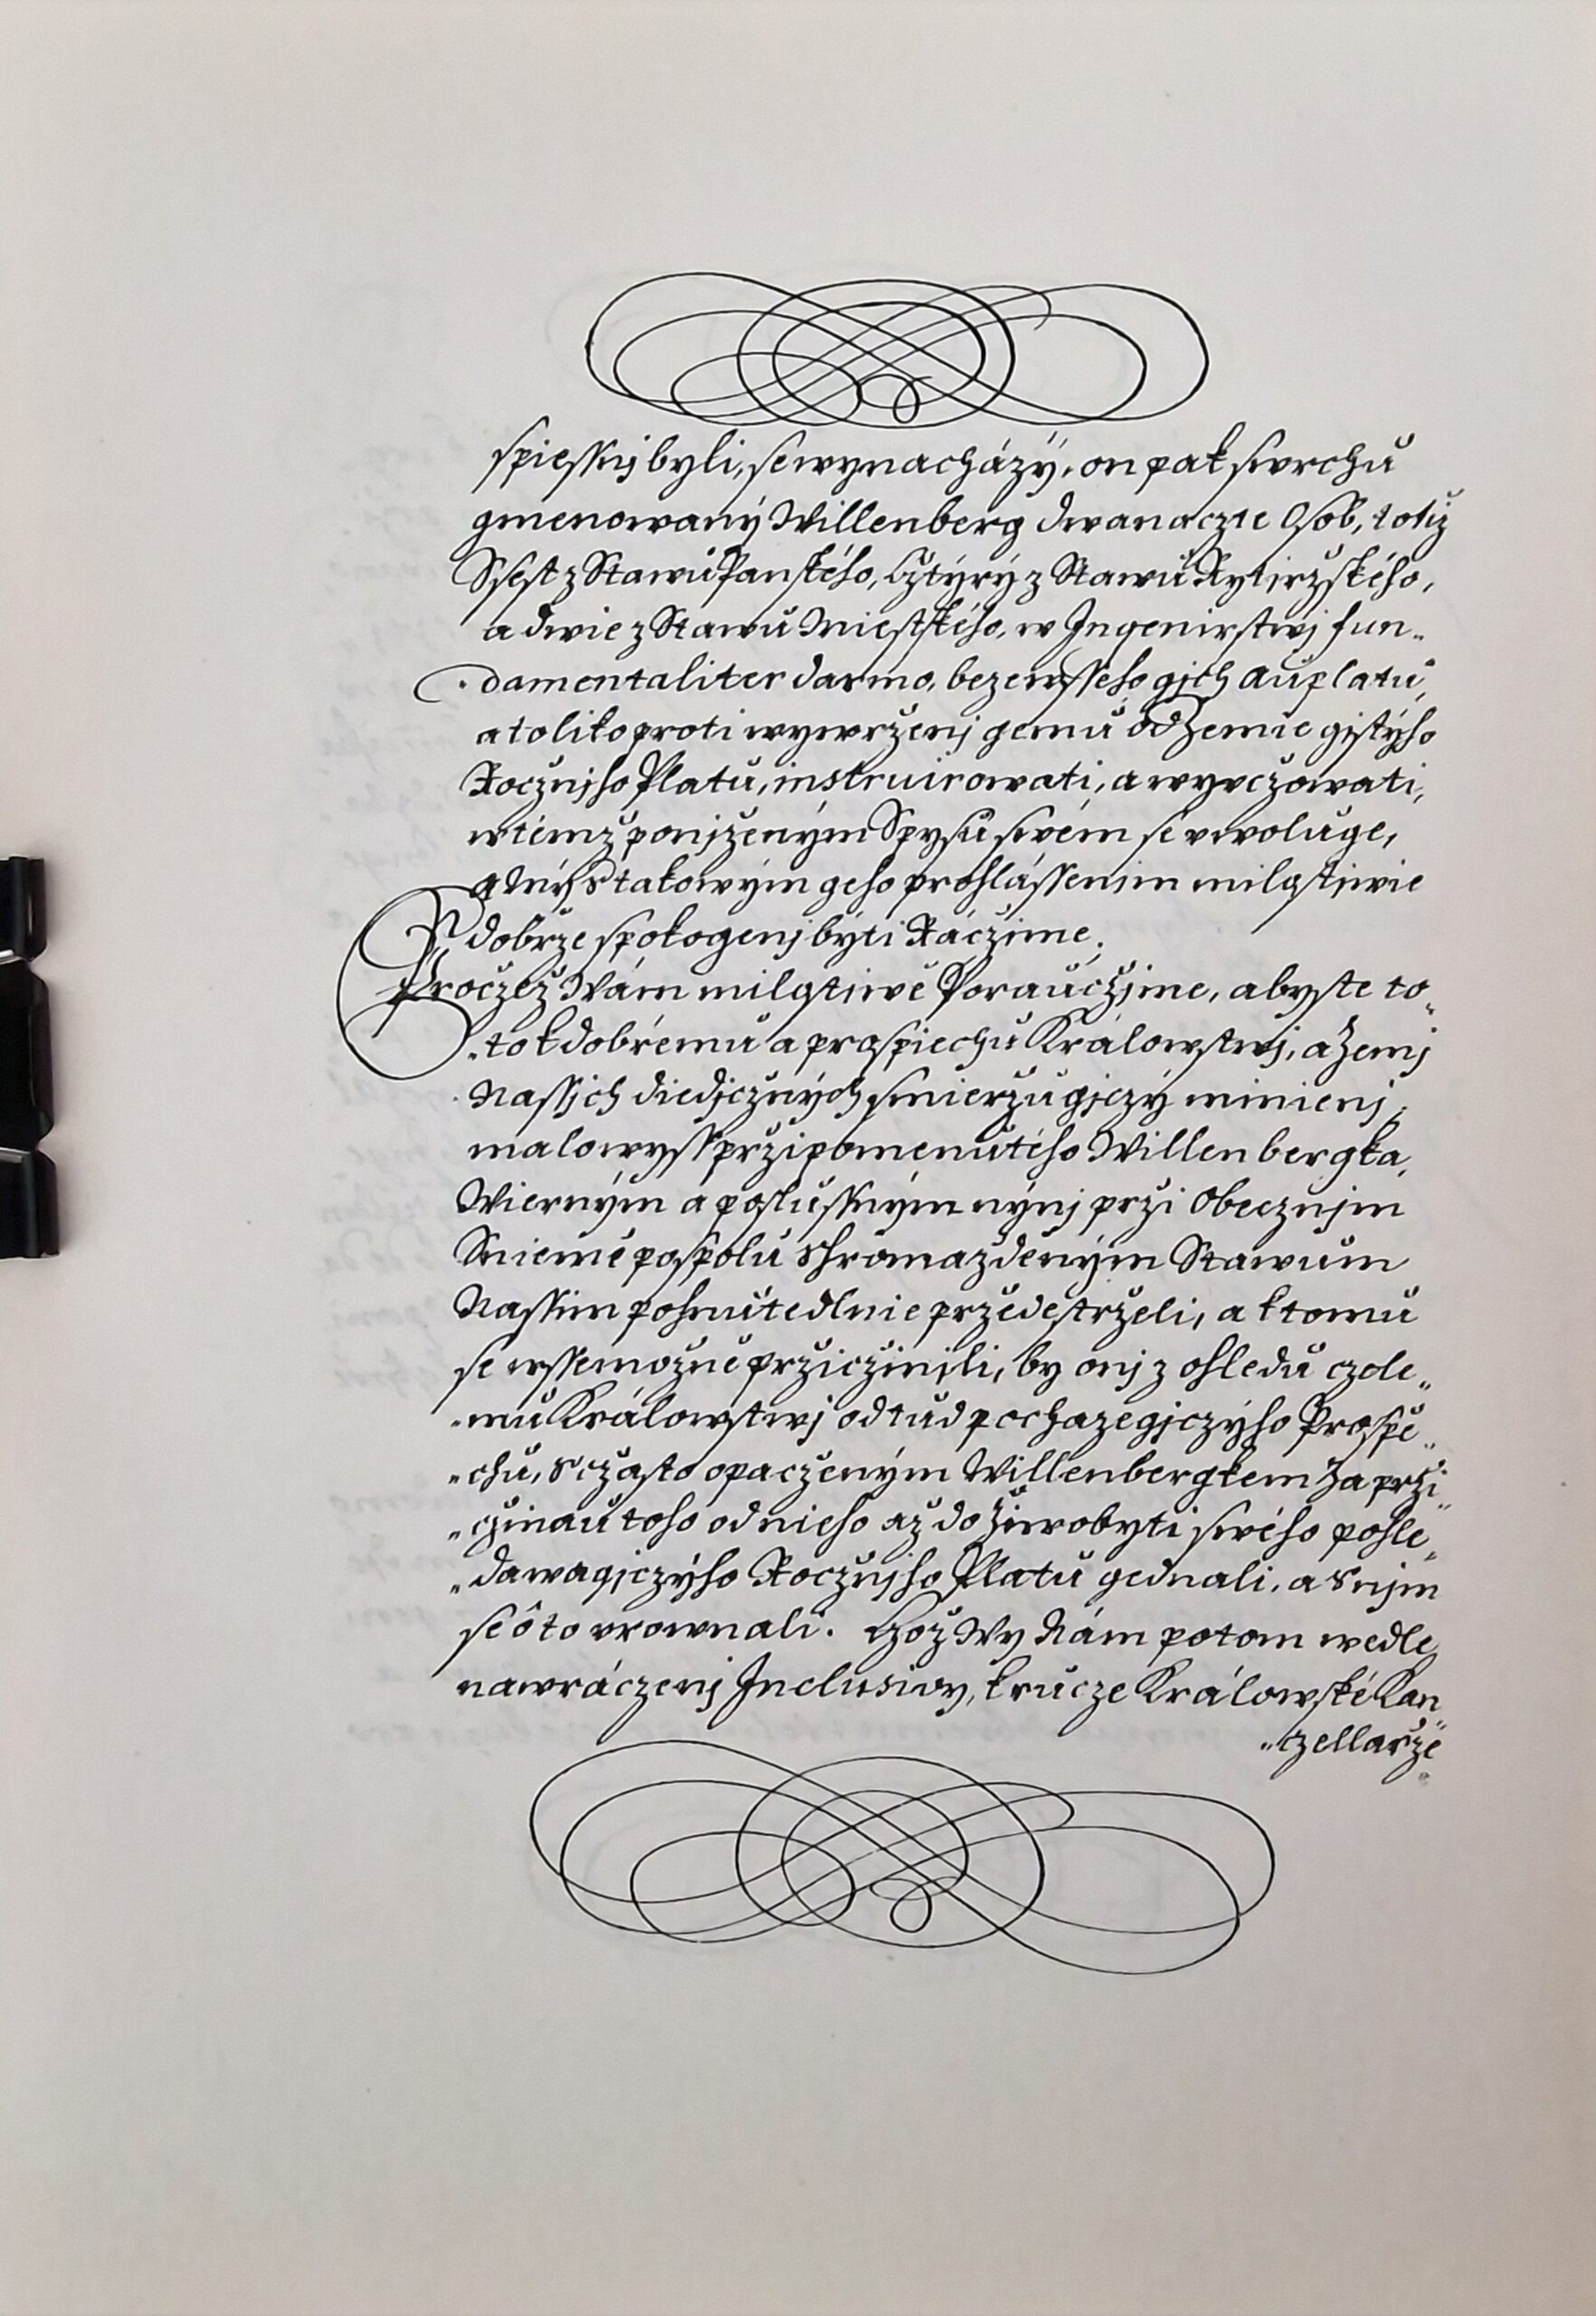 spiessnj byli, se wynacházý, on pak swrchu
gmenowaný Willenberg dwanaczte Osob, totiž
Ssest z Stawu Panského, Cžtýrý z Stawu Rytjržského,
a dwie z Stawu Miestského, w Ingenirstwj fun„
damentaliter darmo, beze wsseho gjch auplatu,
a toliko proti wywrženj gemu od Zemie gistýho
Rocžnjho Platu, instruirowati, a wyvcžowati,
w témž ponjženým Spysu swém se vwoluge,
a My s takowým geho prohlássenim milostiwie
dobrže spokogenj býti Rácžime.
Procžež Wám milostiwě Poraucžjme, abyste to„
„to k dobrému a prospiechu Králowstwj, a Zemj
Nassjch diedjcžných smieržugjczý minienj,
malo wyss pržipomenutého Willenbergka,
Wierným a poslussným nýnj prži Obecznjm
Sniemě pospolu shromážděným Stawum
Nassim pohnutedlnie pržedestrželi, a k tomu
se wssemožně pržicžinili, by onj z ohledu czele„
„mu Králowstwj odtud pochazegjczýho Prospě„
„chu, s cžasto opaczeným Willenbergkem za prži„
„cžinau toho od nieho až do živobyti swého pohle„
„dawagjczýho Rocžnjho Platu gednali, a s njm
se o to vrownali. Cžož Wy Nám potom wedle
nawráczenj Inclusiwy, k rucze Králowské Kan„
„czellarže